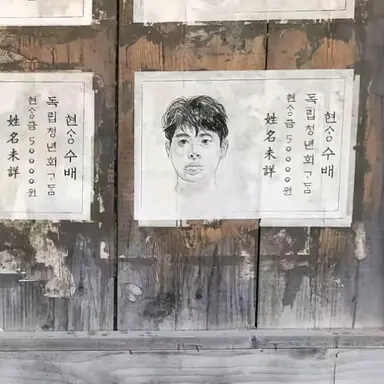 현상수배
독립청년회
현상금 50000원
姓名未詳
현상수배
독립청년회
현상금 50000원
姓名未詳